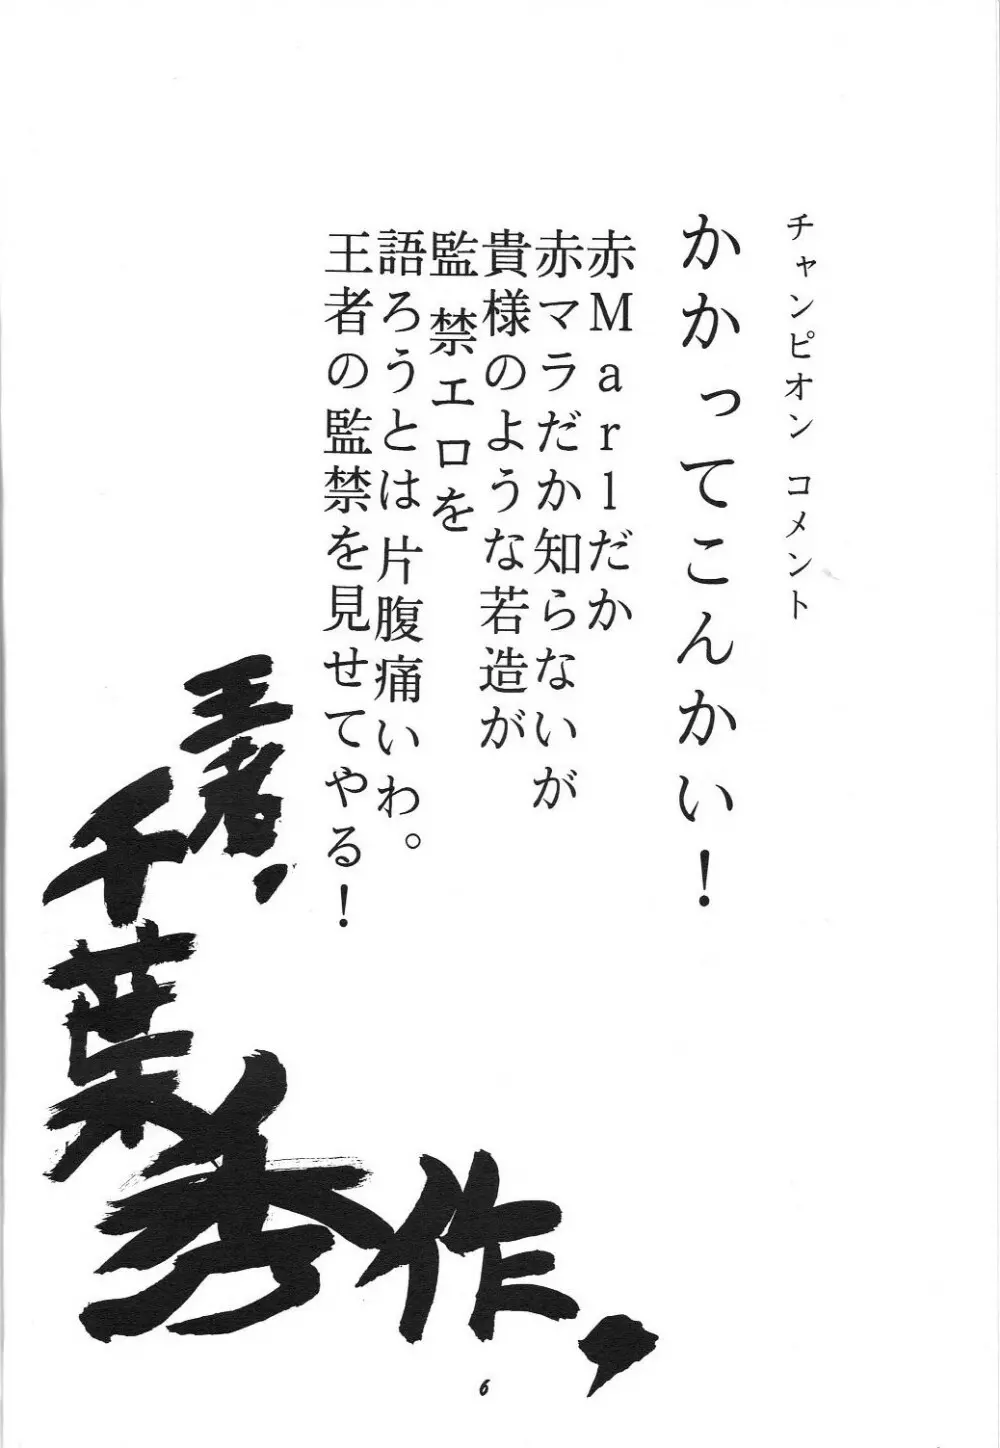 チャンピオン コメント
かかってこんかい！
赤Marlだか
赤マラだか知らないが
貴様のような若造が
監禁エロを
語ろうとは片腹痛いわ。
王者の監禁を見せてやる！
王者，
千葉秀作，
6